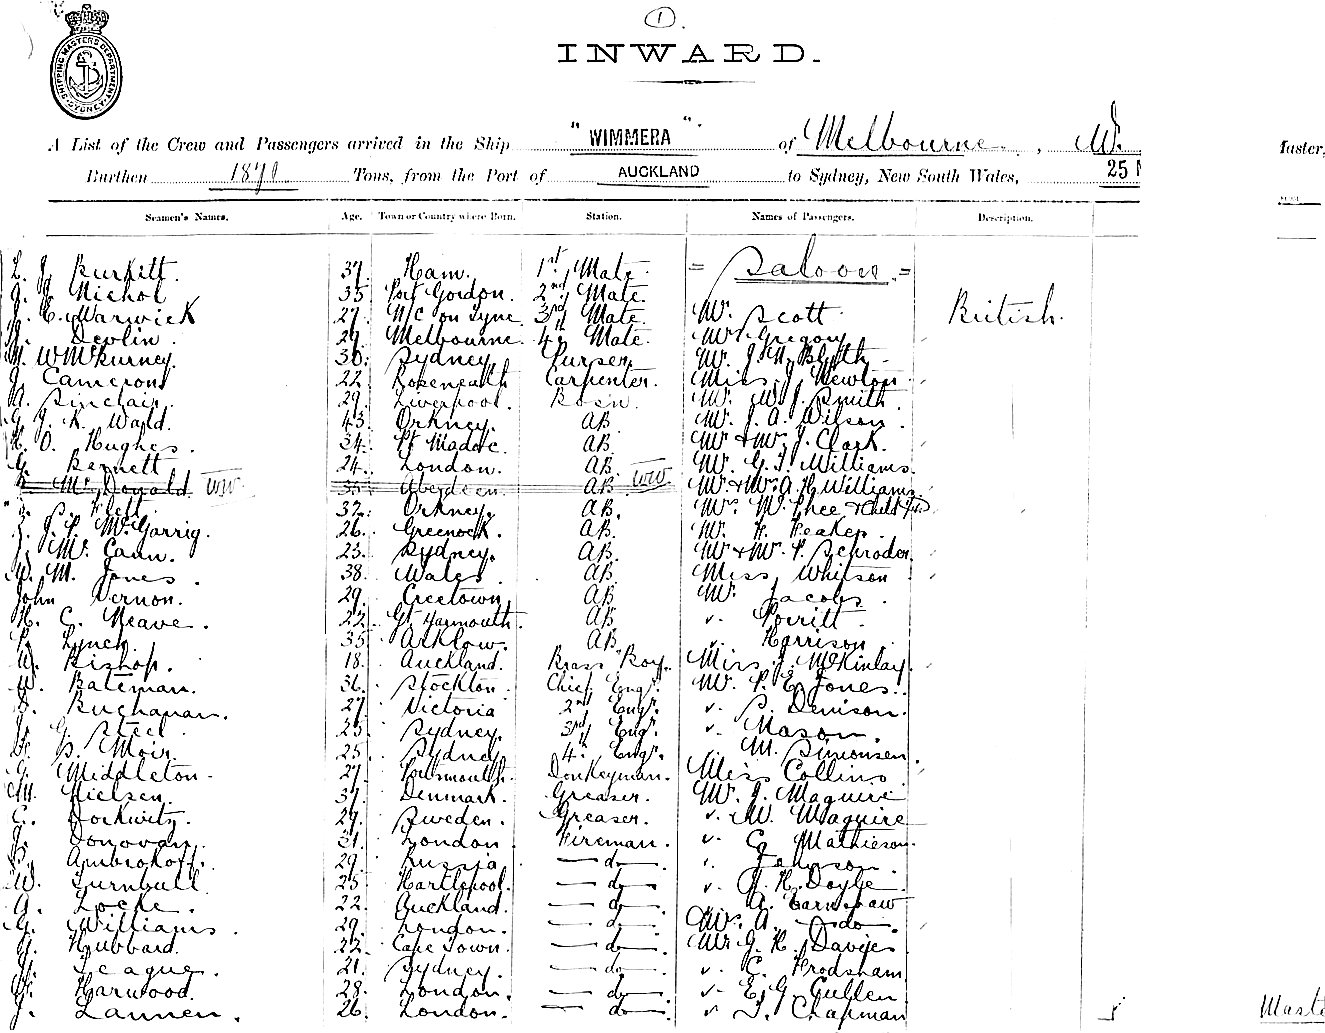 1.
INWARD.
SHIPPING MASTERS DEPARTMENT SYDNEY
A List of the Crew and Passengers arrived in the Ship "WIMMERA" of Melbourne, W.
Master,
Burthen 1871 Tons, from the Port of AUCKLAND to Sydney, New South Wales, 25
Seamen's Names. Age. Town or Country where Born. Station. Names of Passengers. Description.
= Saloon =
Burkitt. 37. Ham. 1st Mate.
J. Nichol 35 Port Gordon. 2nd Mate.
J. C. Warwick 27 N/C on Tyne 3rd Mate. Mr. Scott British.
Devlin. 29 Melbourne 4th Mate. Gregory
W McKurney. 30. Sydney. Purser. Mr. J. Blyth
J. Cameron 22 Roseneath Carpenter. Miss J. Newton
A. Sinclair. 29 Liverpool. Bosn. Mr. W. J. Smith
G. J. K. Ward. 43. Orkney. AB. Mr. J. A. Wilson
O. Hughes. 34. Pt Madoc AB. Mr & Mrs J. Clark.
G. Bennett 24. London. AB. Mr. G. T. Williams.
McDonald WW 35 Aberdeen. AB. WW Mr & Mrs A. H. Williams
Flett. 32. Orkney. AB. Mrs McPhee & Child
J. P. McGarrig. 26. Greenock. AB. Mr.
J. McCann. 23. Sydney. AB. Mr & Mrs P. Schroder.
W. M. Jones. 38. Wales. AB. Miss Whitson
John Vernon. 29. Creetown AB. Mr. Jacobs.
H. C. Neave. 22. Gt. Yarmouth. AB. " Porritt
P. Lynch. 35 Arklow. AB. " Harrison
W. Bishop. 18. Auckland. Brass Boy. Miss J. McKinlay.
W. Bateman. 36. Stockton. Chief Engr. Mr. P. E. Jones.
Buchanan. 27 Victoria 2nd Engr. " S. Denison.
J. G. Steel 23 Sydney. 3rd Engr. " Mason.
S. Moir. 25. Sydney 4th Engr. " M. Simonsen.
G. Middleton. 27. Portsmouth. Donkeyman. Miss Collins
M. Nielsen. 37. Denmark. Greaser. Mr. J. Maguire
C. 27. Sweden. Greaser. " W. Maguire
J. Donovan. 31. London Fireman. " C. Mathieson.
Ambrokoff. 29. Russia — do — " Johnson
W. Turnbull. 25 Hartlepool. — do — " H. Doyle.
A. Locke. 22. Auckland. — do — " A. Earnshaw
G. Williams. 29. London. — do — Mrs. A. — do —
G. Hubbard. 22. Cape Town. — do — Mr G. H. Davies
Teague. 21. Sydney. — do — " C. Frodsham.
Harwood. 28. London. — do — " E. G. Cullen
J. Lannen. 26. London. — do — " T. Chapman